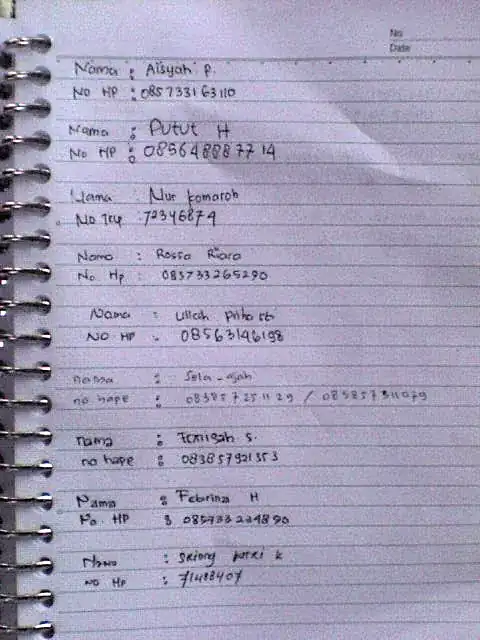 No
Date
Nama : Aisyah P.
No HP : 085733163110
Nama : Putut H
No HP : 085648887714
Nama : Nur Komaroh
No Telp 72346874
Nama : Rossa Riara
No. Hp : 085733265290
Nama : Ulfah
NO HP : 08563146198
nama : Sela - ajah
no hape : 083857251129 / 085857311079
nama : S.
no hape : 083857921353
Nama : Febrina H
No. HP : 085733234890
Nama : putri k
NO HP : 71488407